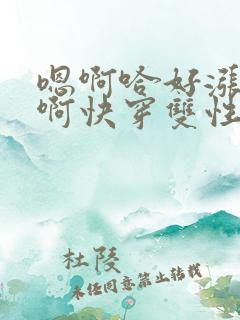 嗯啊哈好漲
啊快穿雙性
杜陵
未经同意禁止转载